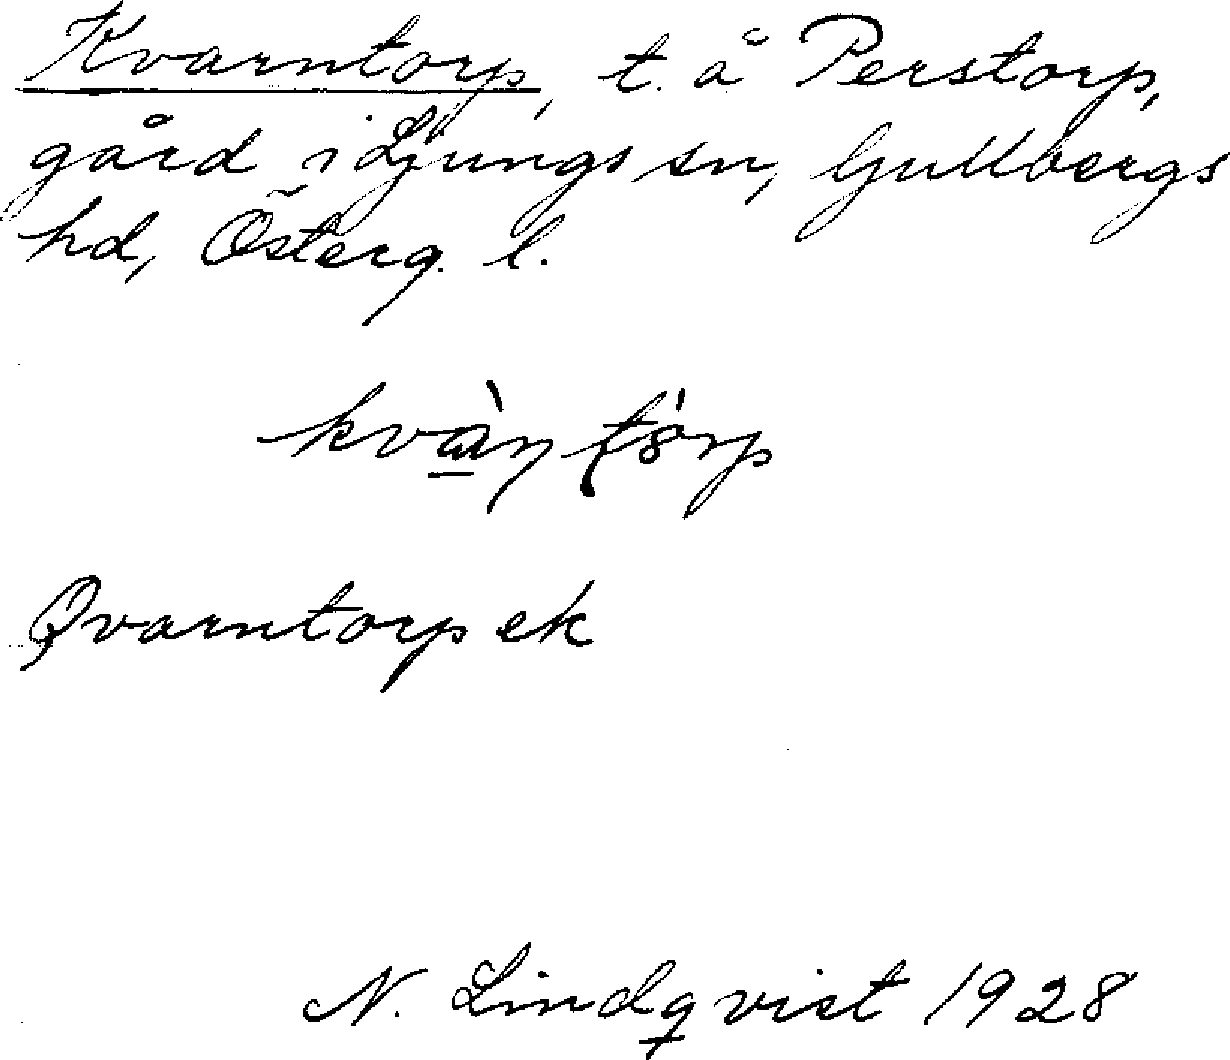 Kvarntorp, t. å Perstorp,
gård i Ljungs sn, Gullbergs
hd, Österg. l.
kvàṇ ţórp
Qvarntorp ek
N. Lindqvist 1928